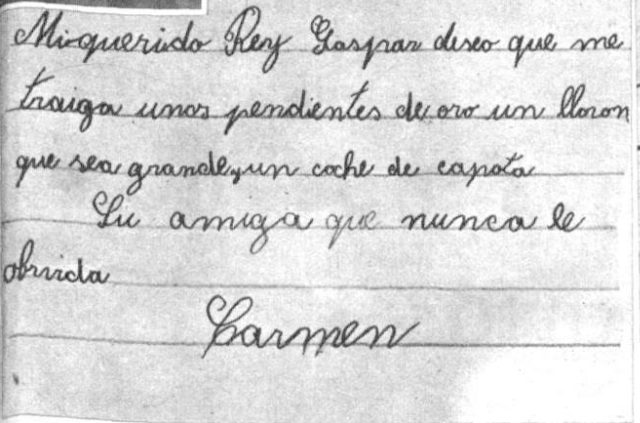 Mi querido Rey Gaspar deseo que me
traiga unos pendientes de oro un lloron
que sea grande, y un coche de capota
Su amiga que nunca le
obvida
Carmen